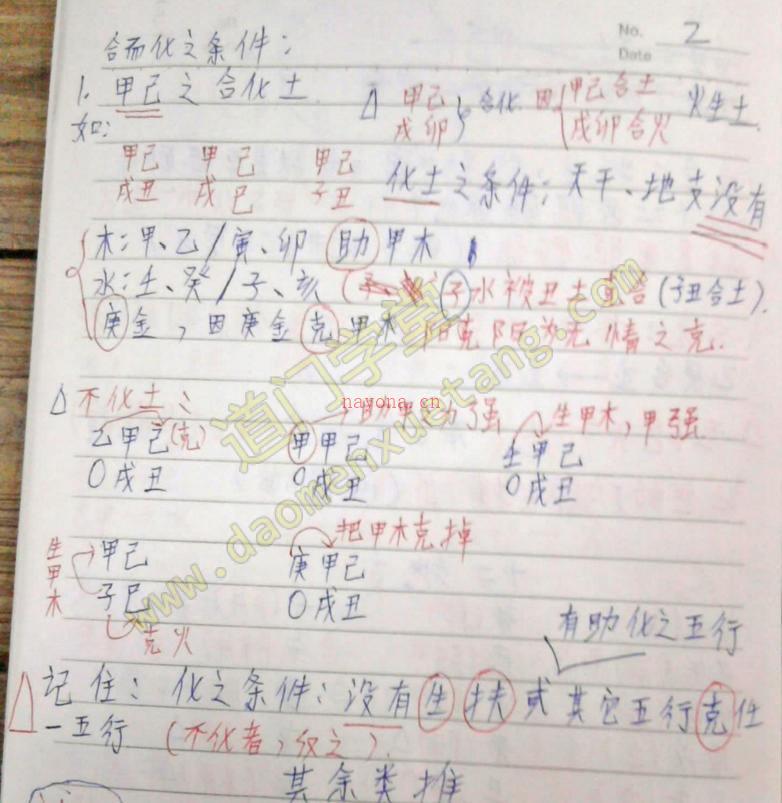 No. 2
Date
合而化之条件：
1. 甲己之合化土 △ 甲己 戊卯 } 合化 因 { 甲己合土 戊卯合火 火生土
如：
甲己 甲己 甲己
戌丑 戌巳 子丑 化土之条件：天干、地支没有
木：甲、乙/寅、卯 助甲木
水：壬、癸/子、亥 (子水被丑土合(子丑合土).
庚金，因庚金克甲木 阳克阳为无情之克.
△不化土：
乙甲己(克) 甲甲己 强 壬甲己 生甲木，甲强
0戌丑 0戌丑 0戌丑
生甲木 甲己 庚甲己 把甲木克掉
子巳 0戌丑
克火
有助化之五行
△记住：化之条件：没有生扶或其它五行克任
一五行 (不化者，反之).
其余类推
道门学堂
www.daomenxuetang.com
nayona.cn